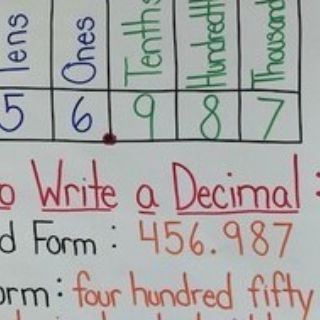 Tens Ones Tenths Hundredth Thousand
5 6 9 8 7
o Write a Decimal:
d Form: 456.987
orm: four hundred fifty